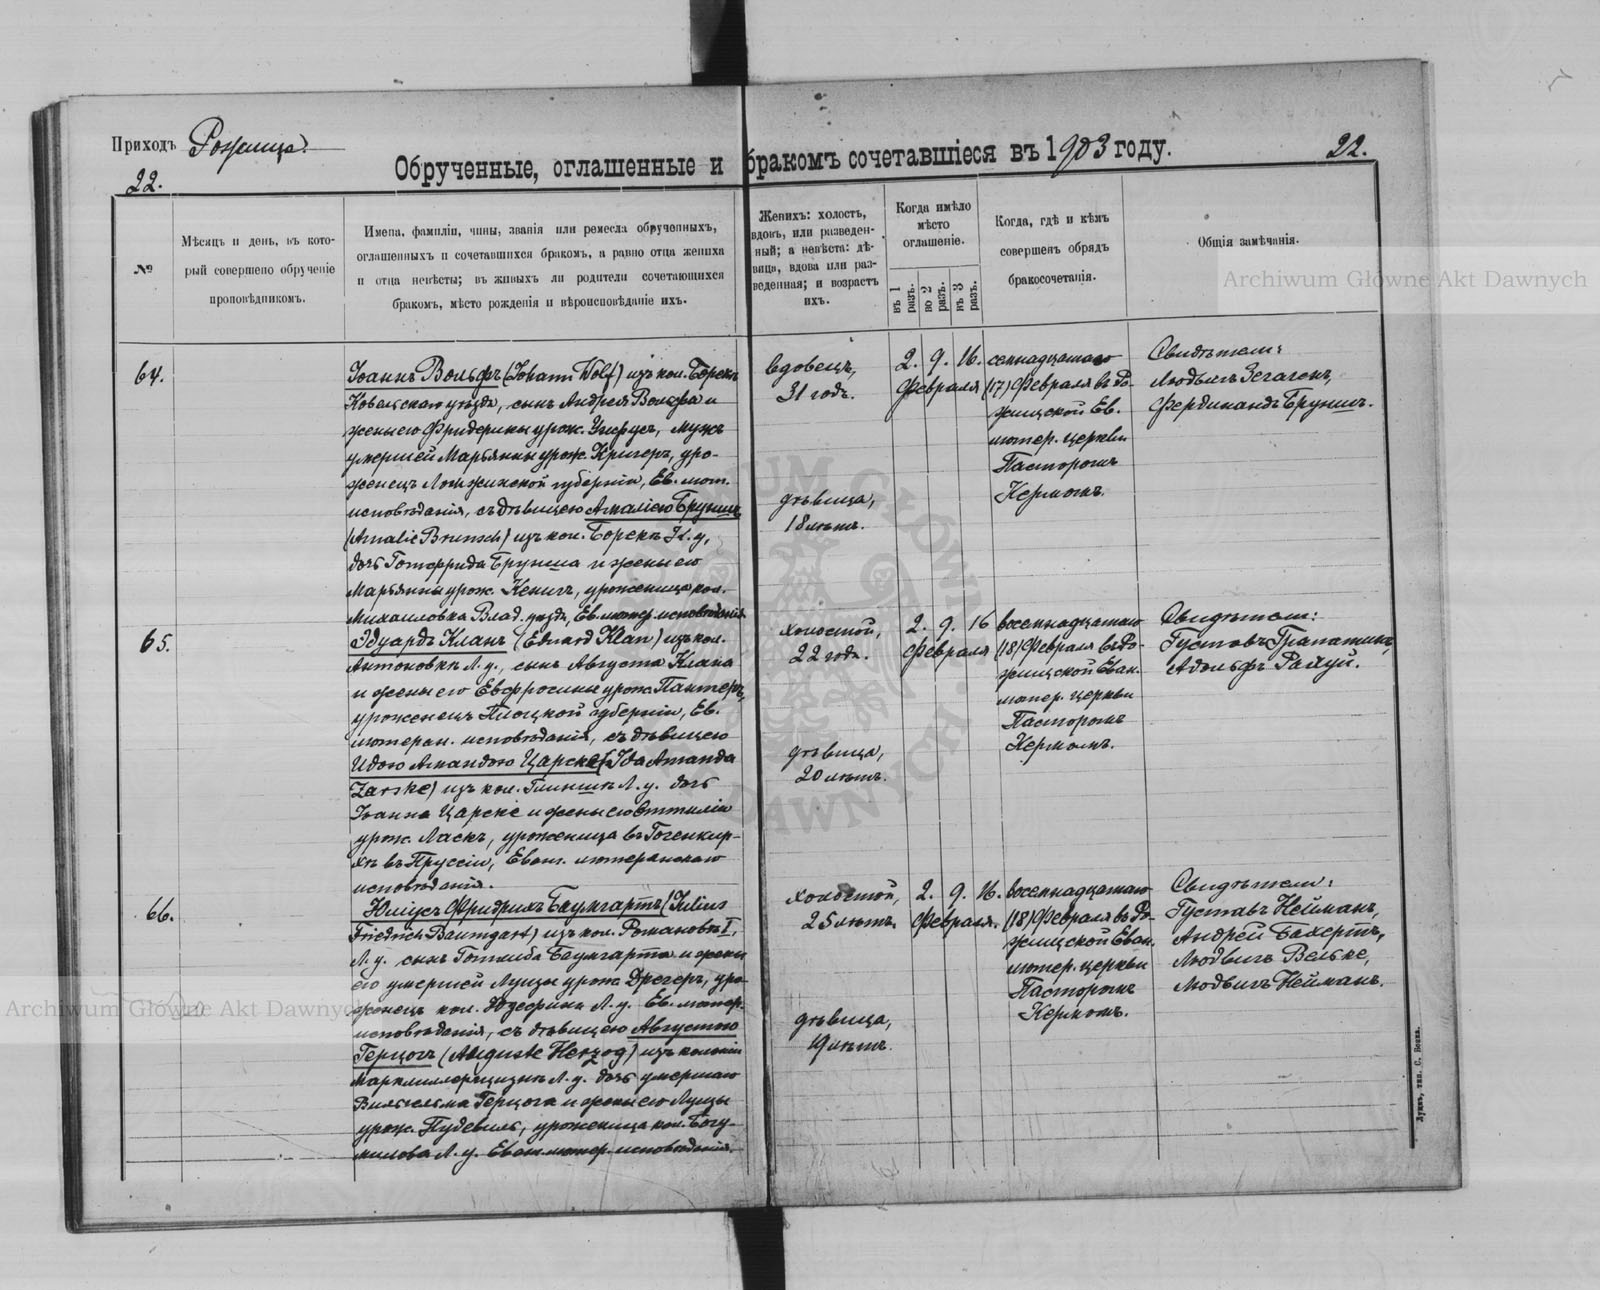 Приходъ Рожище.
22.
Обрученные, оглашенные и бракомъ сочетавшіеся въ 1903 году.
22.
№
Мѣсяцъ и день, въ кото-
рый совершено обрученіе
проповѣдникомъ.
Имена, фамиліи, чины, званія или ремесла обрученныхъ,
оглашенныхъ и сочетавшихся бракомъ, а равно отца жениха
и отца невѣсты; въ живыхъ ли родители сочетающихся
бракомъ, мѣсто рожденія и вѣроисповѣданіе ихъ.
Женихъ: холостъ,
вдовъ, или разведен-
ный; а невѣста: дѣ-
вица, вдова или раз-
веденная; и возрастъ
ихъ.
Когда имѣло
мѣсто
оглашеніе.
въ 1 разъ.
во 2 разъ.
въ 3 разъ.
Когда, гдѣ и кѣмъ
совершенъ обрядъ
бракосочетанія.
Общія замѣчанія.
64.
Іоаннъ Вольфъ (Johann Wolf) изъ кол. Борекъ
Ковельскаго уѣзда, сынъ Андрея Вольфа и
жены его Фридерики урож. мужъ
умершей Марьянны урож. Кригеръ, уро-
женецъ Ломжинской губерніи, Ев. лют.
исповѣданія, съ дѣвицею Амаліею Бруншъ
(Amalie Brunsch) изъ кол. Борекъ К. у.,
дочь Готфрида Брунша и жены его
Марьянны урож. Кенигъ, уроженица кол.
Михаиловка Влад. уѣзда, Ев. лютер. исповѣданія
вдовецъ,
31 годъ.
дѣвица,
18 лѣтъ.
2. 9. 16.
Февраля
семнадцатаго
(17) Февраля въ Ро-
жищской Ев.
лютер. церкви
Пасторомъ
Кермомъ.
Свидѣтели:
Людвигъ
Фердинандъ Бруншъ.
65.
Эдуардъ Кланъ (Eduard Klan) изъ кол.
Антоновкъ Л. у., сынъ Августа Клана
и жены его Евфросины урож. Пантеръ,
уроженецъ Плоцкой губерніи, Ев.
лютеран. исповѣданія, съ дѣвицею
Идою Амандою Царске (Ida Amanda
Zarske) изъ кол. Глинишъ Л. у. дочь
Іоанна Царске и жены его Оттиліи
урож. Ласкъ, уроженица въ Гогенкир-
хъ въ Пруссіи, Еван. лютеранскаго
исповѣданія.
холостой,
22 года.
дѣвица,
20 лѣтъ.
2. 9. 16
Февраля
восемнадцатаго
(18) Февраля въ Ро-
жищской Еван.
лютер. церкви
Пасторомъ
Кермомъ.
Свидѣтели:
Густавъ
Адольфъ
66.
Юліусъ Фридрихъ Баумгартъ (Julius
Friedrich Baumgart) изъ кол. Романовкъ I,
Л. у. сынъ Готлиба Баумгарта и жены
его умершей Луизы урож. Дрегеръ, уро-
женецъ кол. Юзефина Л. у. Ев. лютер.
исповѣданія, съ дѣвицею Августою
Герцогъ (Auguste Herzog) изъ колоніи
Л. у. дочь умершаго
Вильгельма Герцога и жены его Луизы
урож. уроженица кол. Богу-
милова Л. у. Еван. лютер. исповѣданія.
холостой,
25 лѣтъ.
дѣвица,
19 лѣтъ.
2. 9. 16.
Февраля.
восемнадцатаго
(18) Февраля въ Ро-
жищской Еван.
лютер. церкви
Пасторомъ
Кермомъ.
Свидѣтели:
Густавъ Нейманъ,
Андрей Бахертъ,
Людвигъ Вельке,
Людвигъ Нейманъ.
Луцкъ, тип. С. Бокка.
Archiwum Główne Akt Dawnych
Archiwum Główne Akt Dawnych